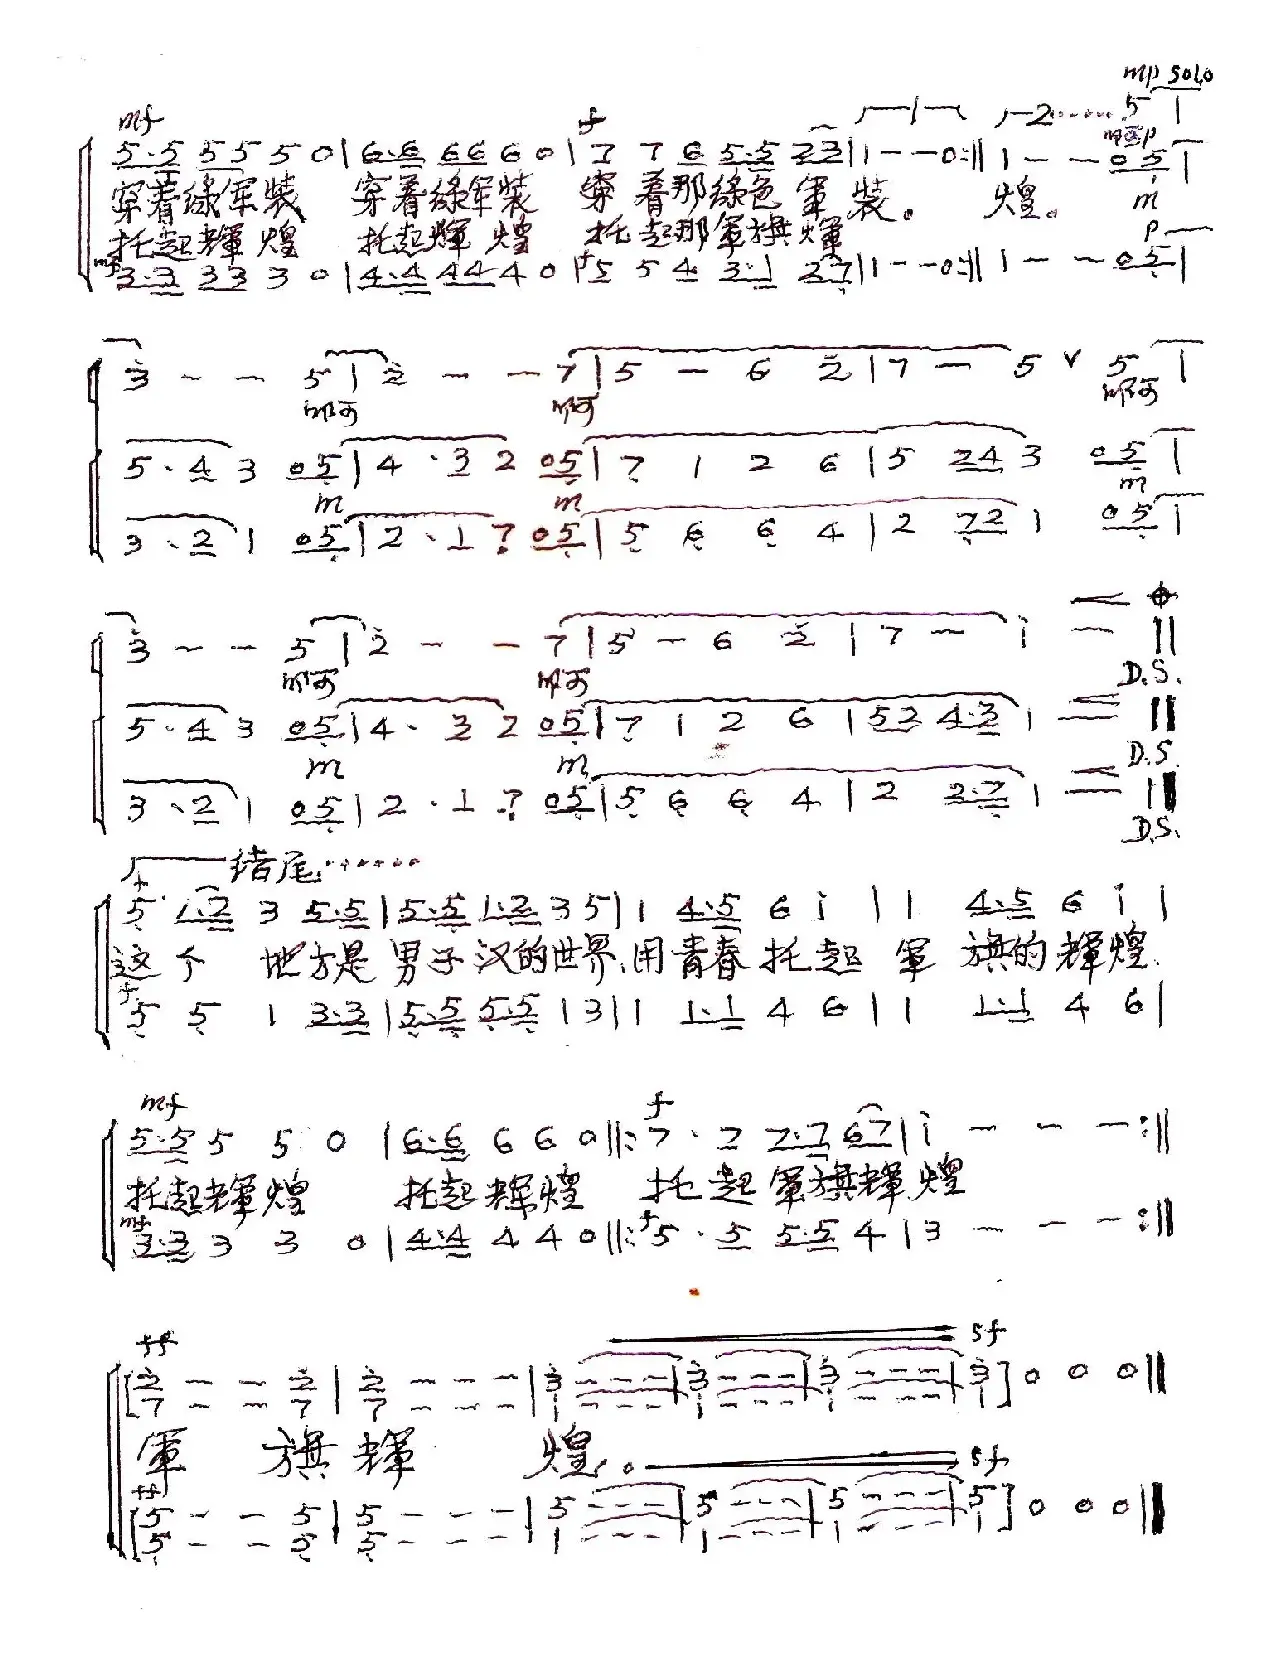 mp solo
mf f 2······ 5 1
5·5 55 5 0 | 6·6 66 6 0 | 7 7 6 5·5 23 | 1 - - 0 :|| 1 - - 05 |
穿着绿军装 穿着绿军装 穿着那绿色軍装。 煌。 m
托起輝煌 托起輝煌 托起那軍旗輝 p
mf 3·3 33 3 0 | 4·4 44 4 0 | f 5 5 4 3·1 27 | 1 - - 0 :|| 1 - - 05 |
3 - - 5 | 2 - - 7 | 5 - 6 2 | 7 - 5 V 5 |
啊 啊 啊
5·4 3 05 | 4·3 2 05 | 7 1 2 6 | 5 24 3 05 |
m m m
3·2 1 05 | 2·1 7 05 | 5 6 6 4 | 2 72 1 05 |
3 - - 5 | 2 - - 7 | 5 - 6 2 | 7 - i - ||
啊 啊 D.S.
5·4 3 05 | 4·3 2 05 | 7 1 2 6 | 52 4·3 1 - ||
m m D.S.
3·2 1 05 | 2·1 7 05 | 5 6 6 4 | 2 2·7 1 - ||
D.S.
结尾······
f
5 1·2 3 5·5 | 5·5 1·2 3 5 | 1 4·5 6 i | 1 4·5 6 i |
这个 地方是男子汉的世界、用青春托起 軍旗的輝煌.
f
5 5 1 3·3 | 5·5 5·5 1 3 | 1 1·1 4 6 | 1 1·1 4 6 |
mf f
5·5 5 5 0 | 6·6 6 6 0 ||: 7·7 7·7 67 | i - - - :||
托起輝煌 托起辉煌 托起軍旗輝煌
mf 3·3 3 3 0 | 4·4 4 4 0 ||: f 5·5 5·5 4 | 3 - - - :||
ff sf
2 - - 2 | 2 - - - | 3 - - - | 3 - - - | 3 - - - | 3 0 0 0 ||
7 - - 7 | 7 - - - | 1 - - - | 1 - - - | 1 - - - | 1
軍 旗輝 煌。 sf
ff
5 - - 5 | 5 - - - | 5 - - - | 5 - - - | 5 - - - | 5 0 0 0 ||
5 - - 5 | 5 - - - | 1 - - - | 1 - - - | 1 - - - | 1